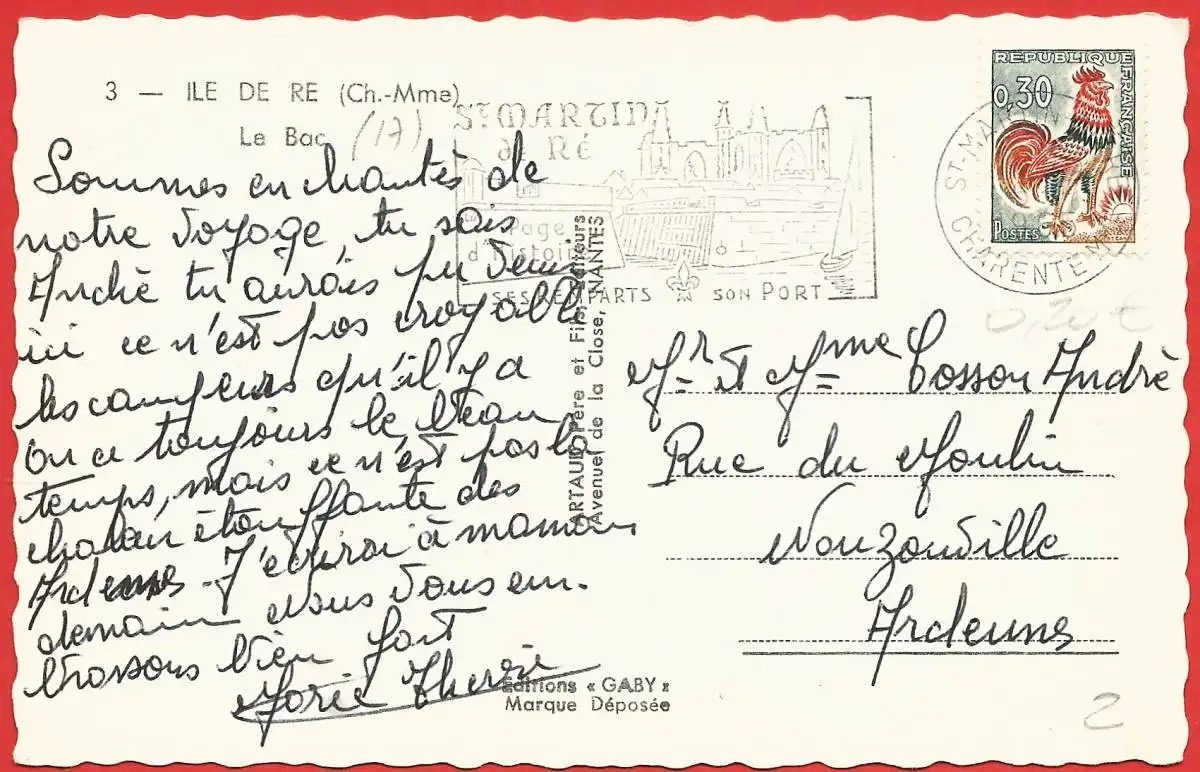 3 — ILE DE RE (Ch.-Mme)
Le Bac (17)
Sommes enchantés de
notre voyage, tu sais
André tu aurais pu venir
ici ce n'est pas croyable
les campeurs qu'il y a
On a toujours le beau
temps, mais ce n'est pas la
chaleur étouffante des
Ardennes. J'écrirai à maman
demain Nous vous em-
brassons bien fort
Marie Thérèse
ST MARTIN
de RÉ
Page
d'histoire
SES REMPARTS SON PORT
ARTAUD Père et Fils, Editeurs
Avenue de la Close, NANTES
Editions « GABY »
Marque Déposée
REPUBLIQUE FRANÇAISE
0,30
POSTES
ST-MARTIN
CHARENTE-M
0,20 €
Mr et Mme Cosson André
Rue du Moulin
Nouzonville
Ardennes
2